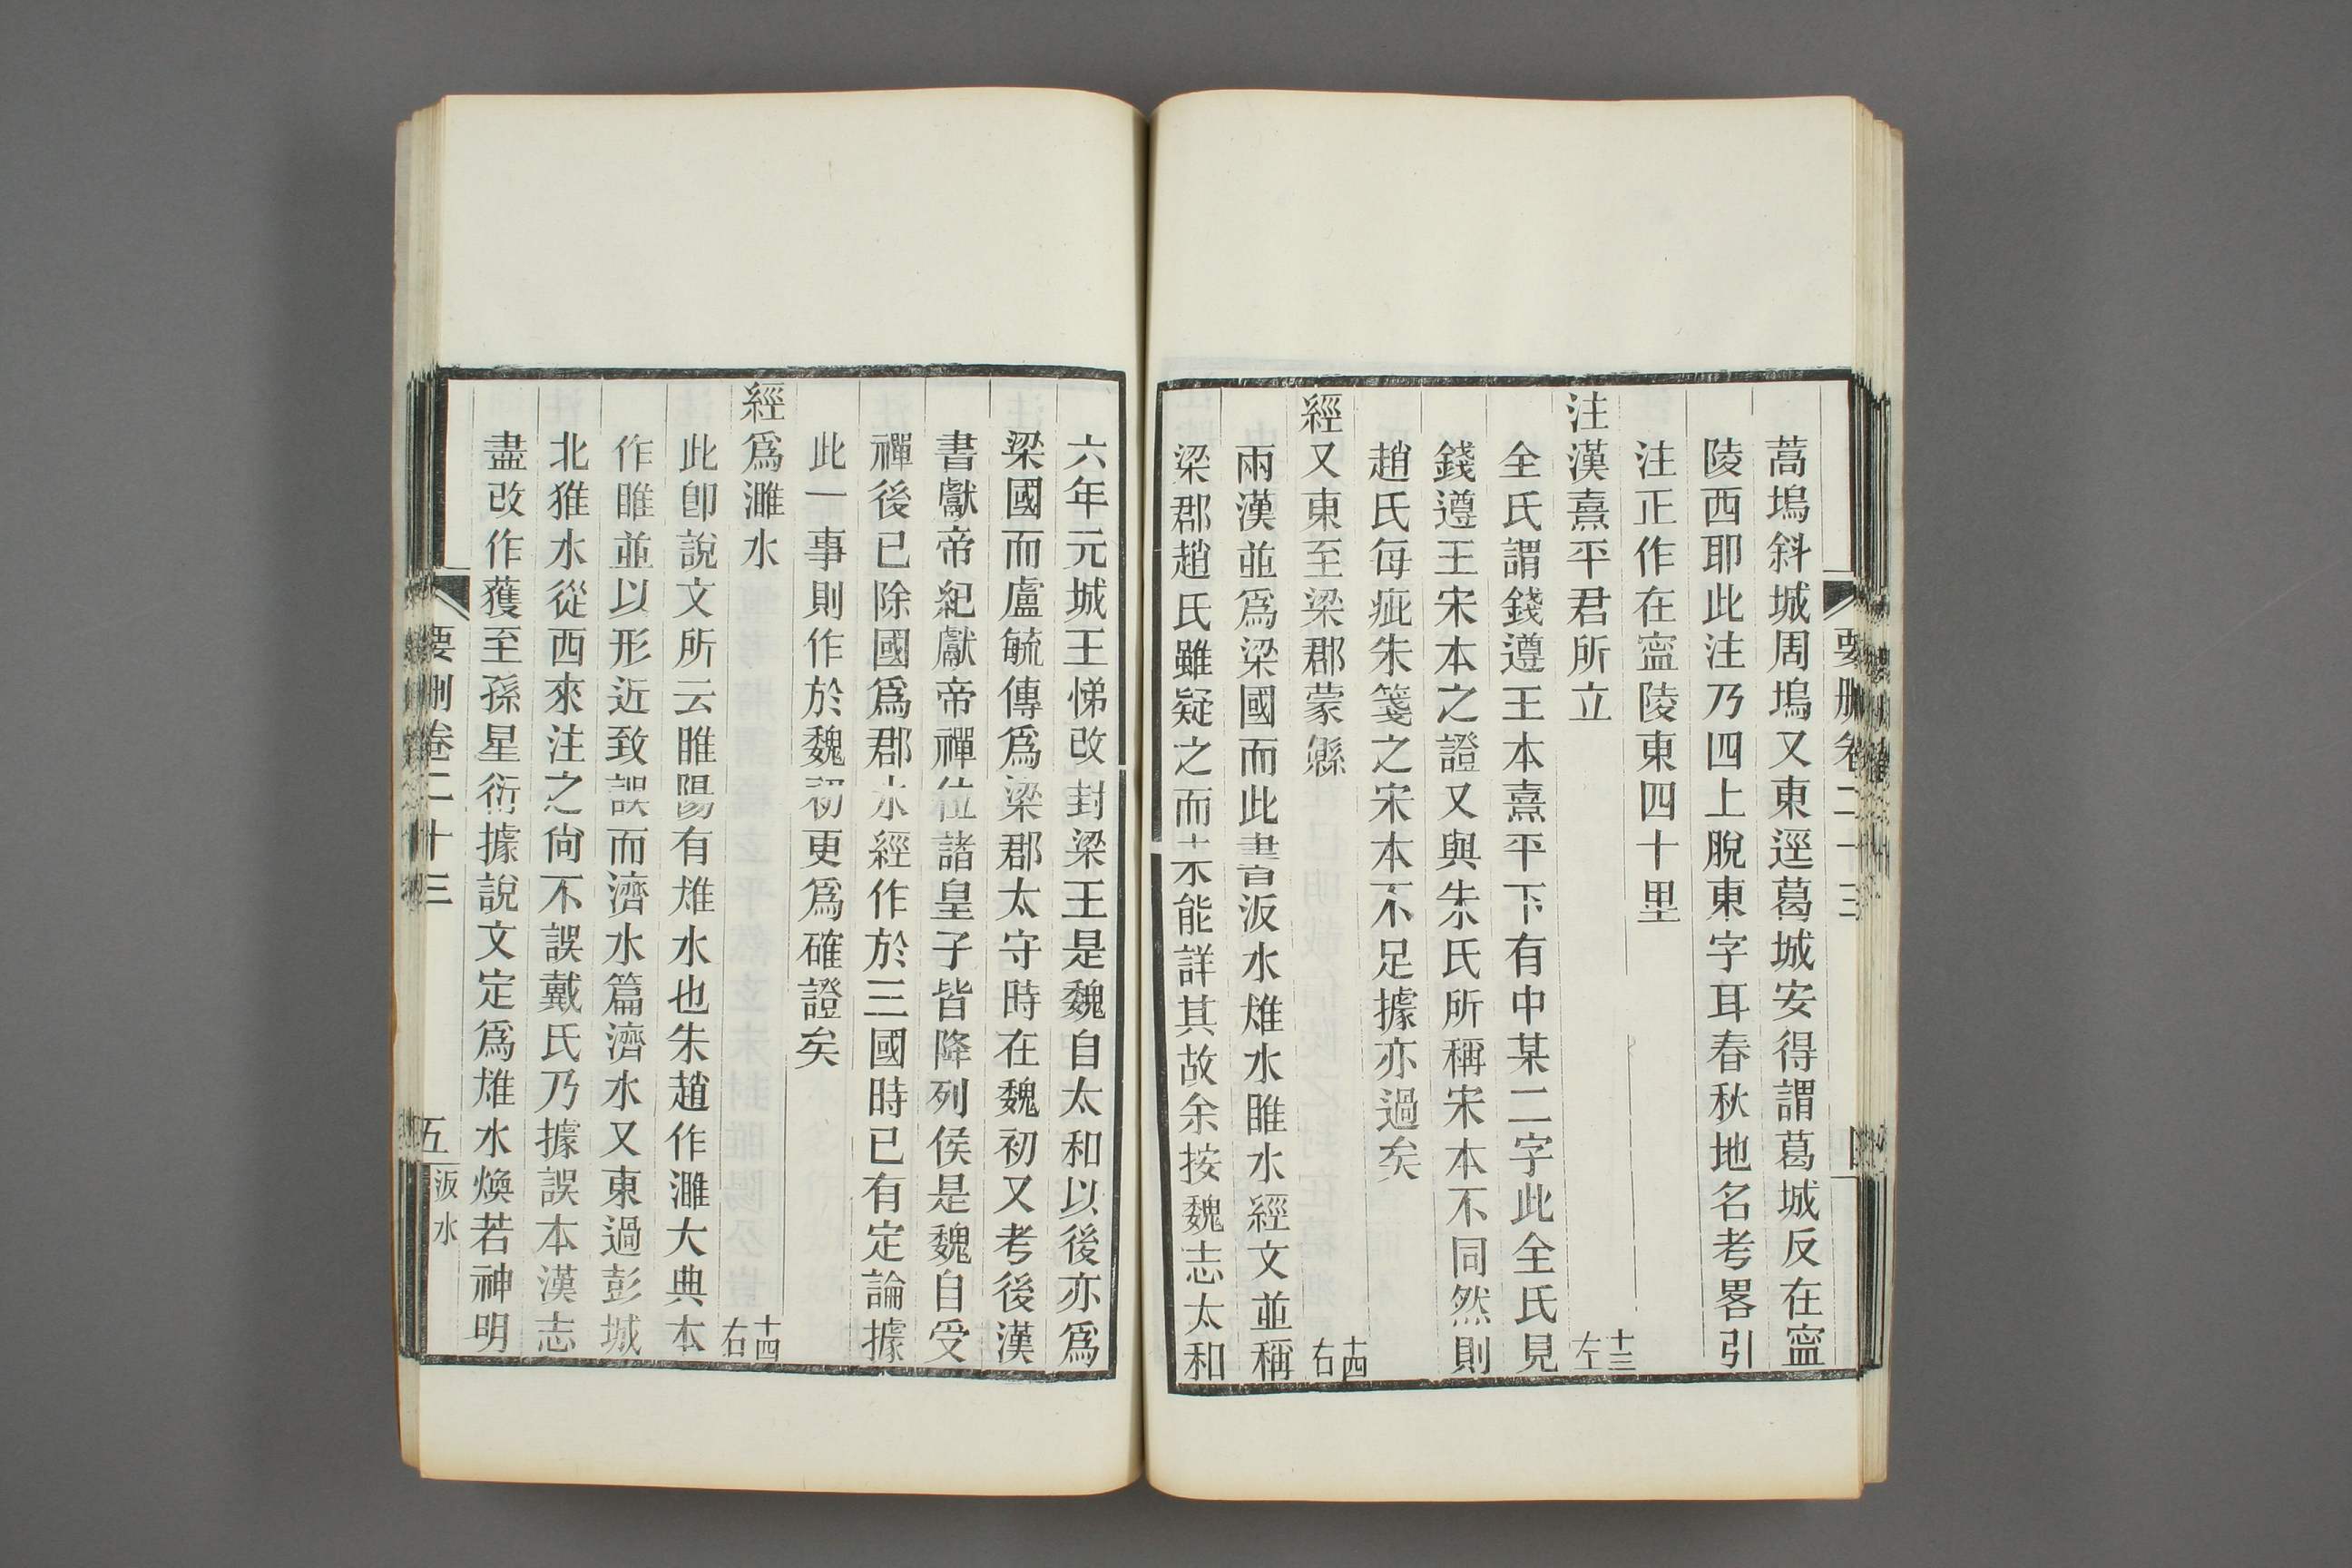 要刪卷二十三
蒿塢斜城周塢又東逕葛城安得謂葛城反在寍
陵西耶此注乃四上脫東字耳春秋地名考畧引
注正作在寍陵東四十里
注漢熹平君所立 十三左
全氏謂錢遵王本熹平下有中某二字此全氏見
錢遵王宋本之證又與朱氏所稱宋本不同然則
趙氏每疵朱箋之宋本不足據亦過矣
經又東至梁郡蒙縣 十四右
兩漢並爲梁國而此書汳水㷀水睢水經文並稱
梁郡趙氏雖疑之而未能詳其故余按魏志太和
六年元城王悌改封梁王是魏自太和以後亦爲
梁國而盧毓傳爲梁郡太守時在魏初又考後漢
書獻帝紀獻帝禪位諸皇子皆降列侯是魏自受
禪後已除國爲郡水經作於三國時已有定論據
此一事則作於魏初更爲確證矣
經爲濉水 十四右
此卽說文所云睢陽有㷀水也朱趙作濉大典本
作睢並以形近致誤而濟水篇濟水又東過彭城
北獾水從西來注之尙不誤戴氏乃據誤本漢志
盡改作獲至孫星衍據說文定爲㷀水煥若神明
要刪卷二十三 五 汳水